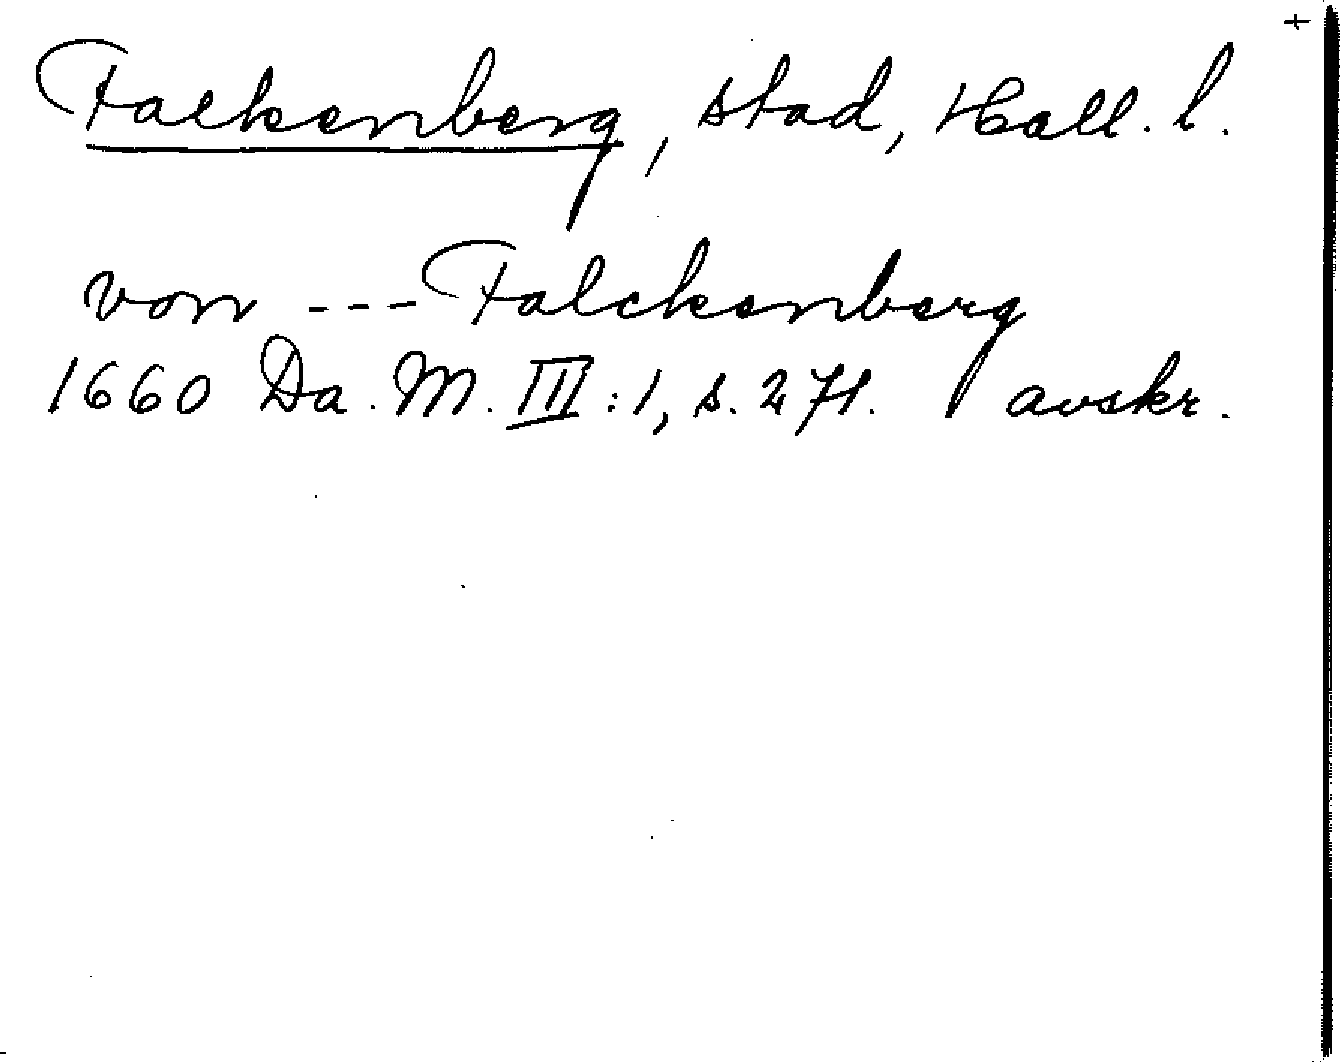 +
Falkenberg, stad, Hall. l.
von --- Falckenberg
1660 Da. M. III:1, s. 271. avskr.